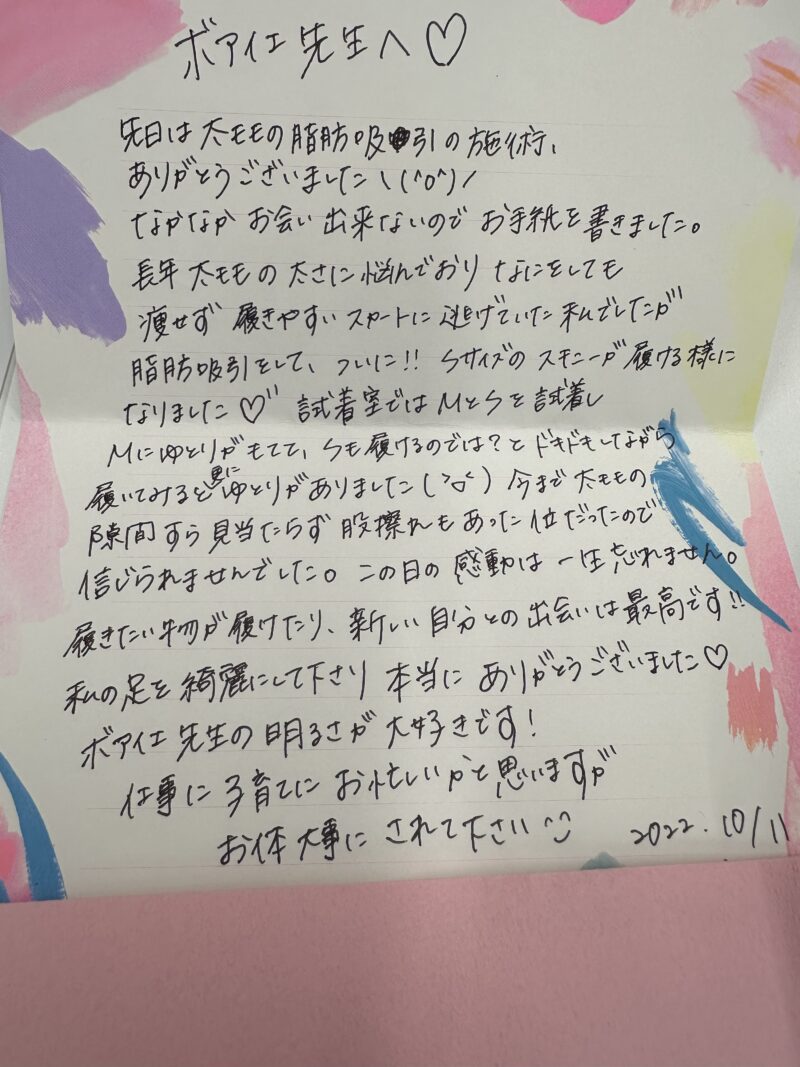 ボアイエ先生へ♡
先日は太モモの脂肪吸引の施術、
ありがとうございました\(^o^)/
なかなかお会い出来ないのでお手紙を書きました。
長年太モモの太さに悩んでおりなにをしても
痩せず履きやすいスカートに逃げていた私でしたが
脂肪吸引をして、ついに!! Sサイズのスキニーが履ける様に
なりました♡ 試着室ではMとSを試着し
Mにゆとりがもてて、Sも履けるのでは?とドキドキしながら
履いてみると更にゆとりがありました(>o<) 今まで太モモの
隙間すら見当たらず股擦れもあった位だったので
信じられませんでした。この日の感動は一生忘れません。
履きたい物が履けたり、新しい自分との出会いは最高です!!
私の足を綺麗にして下さり本当にありがとうございました♡
ボアイエ先生の明るさが大好きです!
仕事に子育てにお忙しいかと思いますが
お体大事にされて下さい^^
2022.10/11